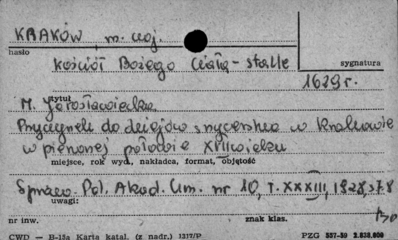 KRAKÓW m. woj.
hasło
kościół Bożego Ciała - stalle
sygnatura
1629 r.
tytuł
M. Jarosławiecka
Przyczynek do dziejów snycerstwa w Krakowie
w pierwszej połowie XVII wieku
miejsce, rok wyd., nakładca, format, objętość
Sprawo. Pol. Akad. Um. nr 10, T. XXXIII, 1928, s. 7-8
uwagi:
nr inw.
znak klas.
CWD — B-15a Karta katal. (z nadr.) 1317/P
PZG